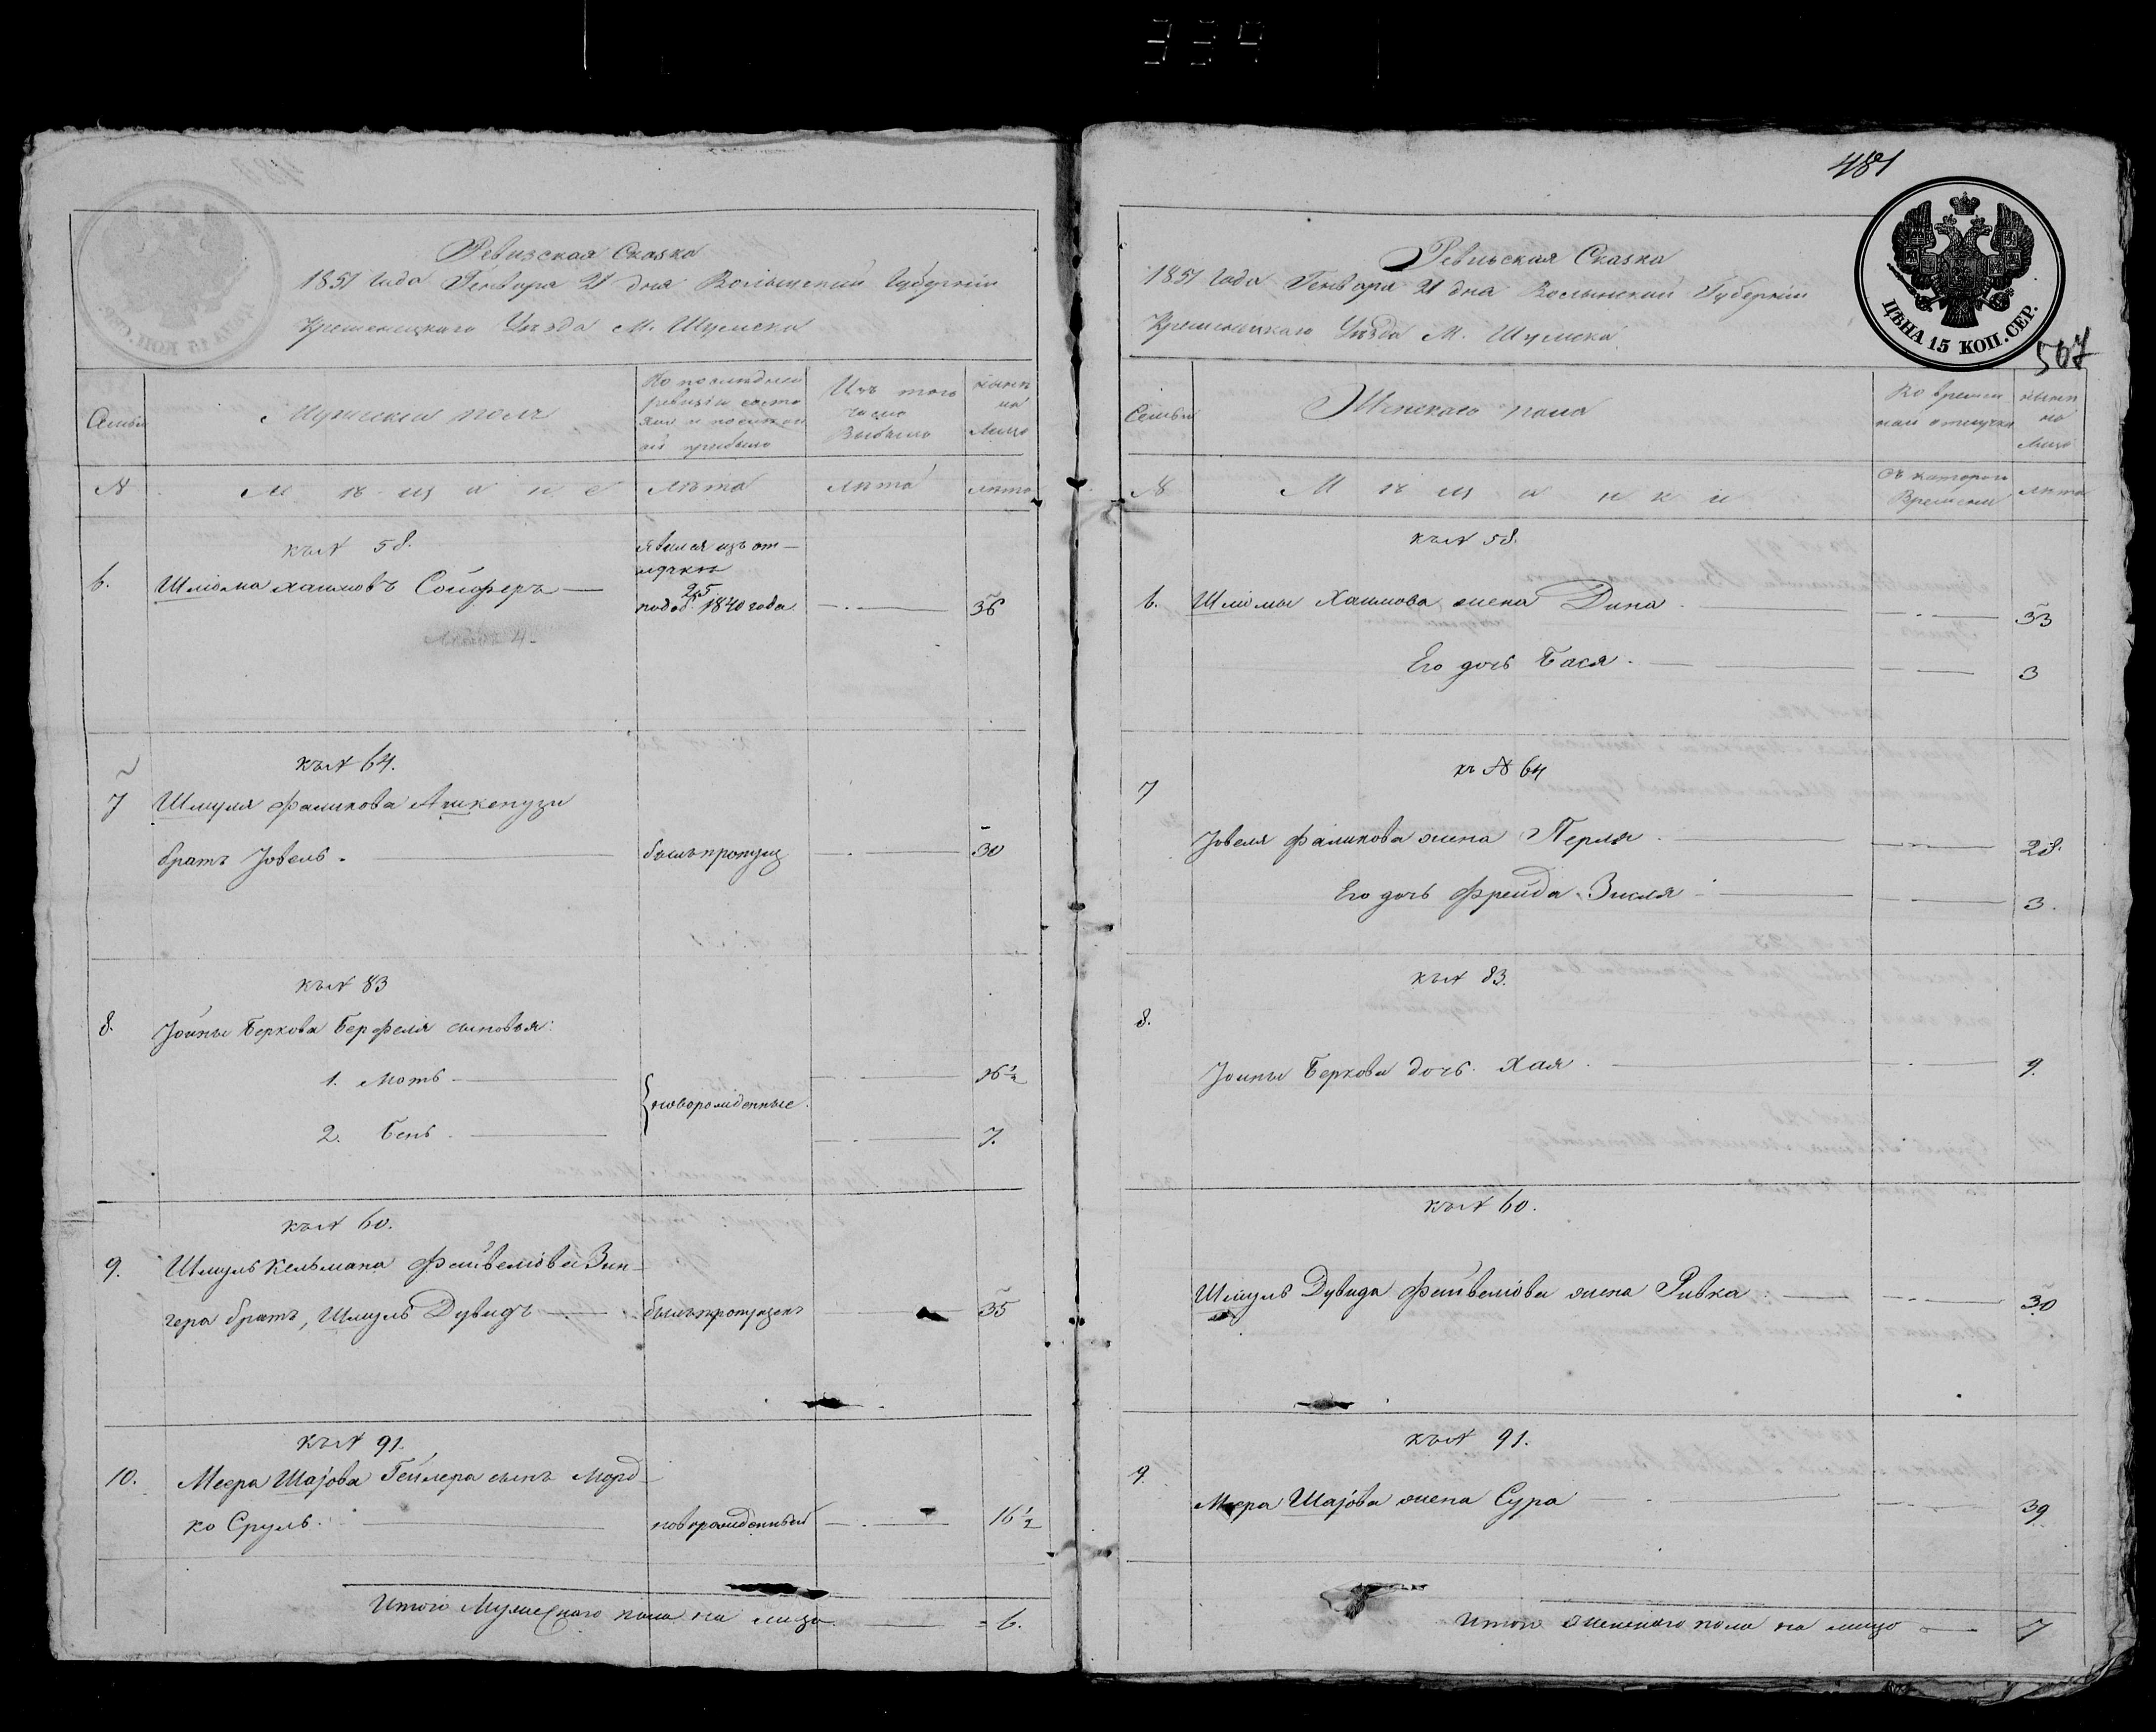 339
Ревизская Сказка
1851 года Генваря 21 дня Волынской Губернии
Кременецкаго Уезда М. Шумска
Семьи
Мужеский полъ
По последней
ревизии состо
яло и после
ой прибыло
Изъ того
числа
Выбыло
ныне
на
лицо
№
Мещане
Лета
Лета
лета
къ № 58.
явился изъ от-
лучки
25
подоб. 1840 года
6.
Шліома Хаимовъ Сойферъ
36
къ № 64.
7
Шмуля Фаликова Ашкенузи
братъ Іовель.
былъ пропущ
30
къ № 83
8.
Іойны Беркова Берфеля сыновья:
1. Мотъ
16 1/2
новорожденные.
2. Бень
7.
къ № 60.
9.
Шмуль Кельмана Файвеліова Зин-
гера братъ, Шмуль Дувидъ
былъ пропущенъ
35
къ № 91.
10.
Меера Шаіова Геклера сынъ Морд-
ко Сруль.
новорожденный
16 1/2
Итого Мужескаго пола на лицо
6.
481
ЦѢНА 15 КОП. СЕР.
507
Ревизская Сказка
1851 года Генваря 21 дна Волынской Губернии
Кременецкаго Уезда М. Шумска
Семьи
Женскаго пола
Во времен
ной отлучке
ныне
на
лицо
№
Мещанки
Съ котораго
Времени
лета
къ № 58.
6.
Шліомы Хаимова жена Дина
33
Его дочь Бася.
3
къ № 64
7
Іовеля Фаликова жена Перля
28.
Его дочь Фрейда Зисля
3.
къ № 83.
8.
Іойны Беркова дочь Хая.
9.
къ № 60.
Шмуль Дувида Файвеліова жена Ривка
30
къ № 91.
9.
Меера Шаіова жена Сура
39
Итого женскаго пола на лицо
7